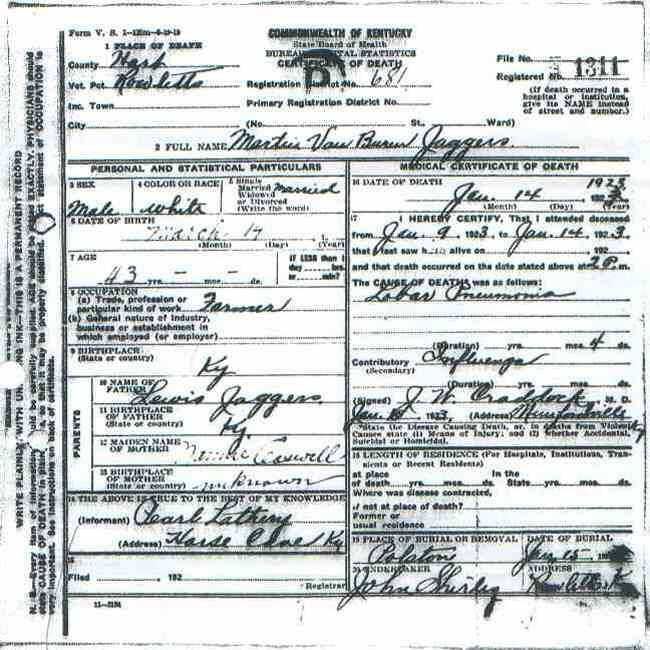 Form V. S. 1-125m-6-19-19
COMMONWEALTH OF KENTUCKY
State Board of Health
BUREAU VITAL STATISTICS
CERTIFICATE OF DEATH
1 PLACE OF DEATH
County Hart
Vot. Pct. Rowletts
Registration District No. 681
File No.
Registered No. 1311
Inc. Town
Primary Registration District No.
(If death occurred in a hospital or institution, give its NAME instead of street and number.)
City (No. St., Ward)
2 FULL NAME Martin Van Buren Jaggers
PERSONAL AND STATISTICAL PARTICULARS
3 SEX Male
4 COLOR OR RACE White
5 Single Married Widowed or Divorced (Write the word) Married
6 DATE OF BIRTH
March 17
(Month) (Day) (Year)
7 AGE
43 yrs. mos. ds.
If LESS than 1 day hrs. or min?
8 OCCUPATION
(a) Trade, profession or particular kind of work Farmer
(b) General nature of industry, business or establishment in which employed (or employer)
9 BIRTHPLACE
(State or country) Ky
PARENTS
10 NAME OF FATHER Lewis Jaggers
11 BIRTHPLACE OF FATHER
(State or country) Ky
12 MAIDEN NAME OF MOTHER
13 BIRTHPLACE OF MOTHER
(State or country) unknown
14 THE ABOVE IS TRUE TO THE BEST OF MY KNOWLEDGE
(Informant)
(Address) Horse Cave Ky
15
Filed 192
Registrar
11-3184
MEDICAL CERTIFICATE OF DEATH
16 DATE OF DEATH
Jan. 14 1923
(Month) (Day) (Year)
17 I HEREBY CERTIFY, That I attended deceased
from Jan. 9 1923 to Jan. 14, 1923
that I last saw him alive on 192
and that death occurred on the date stated above at 2 P. m.
The CAUSE OF DEATH was as follows:
Lobar Pneumonia
(Duration) yrs. mos. 4 ds.
Contributory Influenza
(Secondary)
(Duration) yrs. mos. ds.
(Signed) J. W. Craddock M. D.
Jan. 1923 (Address) Munfordville
State the Disease Causing Death, or, in deaths from Violent Causes state (1) Means of Injury; and (2) whether Accidental, Suicidal or Homicidal.
18 LENGTH OF RESIDENCE (For Hospitals, Institutions, Transients or Recent Residents)
At place of death yrs. mos. ds. In the State yrs. mos. ds.
Where was disease contracted,
if not at place of death?
Former or usual residence
19 PLACE OF BURIAL OR REMOVAL DATE OF BURIAL
Polston Jan 15
20 UNDERTAKER ADDRESS
John Shirley Rowletts Ky
WRITE PLAINLY, WITH UNFADING INK—THIS IS A PERMANENT RECORD